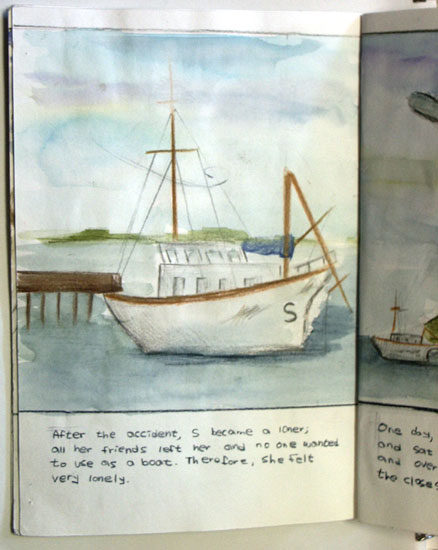 S
After the accident, S became a loner;
all her friends left her and no one wanted
to use as a boat. Therefore, she felt
very lonely.
One day,
and sat
and over
the closes